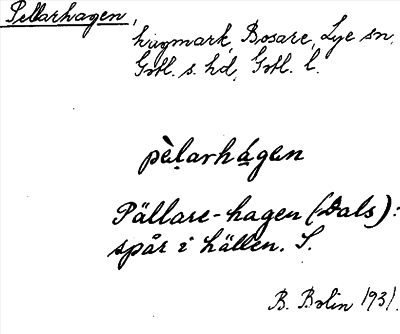 Pellarhagen,
hagmark, Bosare, Lye sn.
Gotl. s. hd, Gotl. l.
pὲl̥arhágen
Pällare-hagen (Dals):
spår i hällen. S.
B. Bolin 1931.